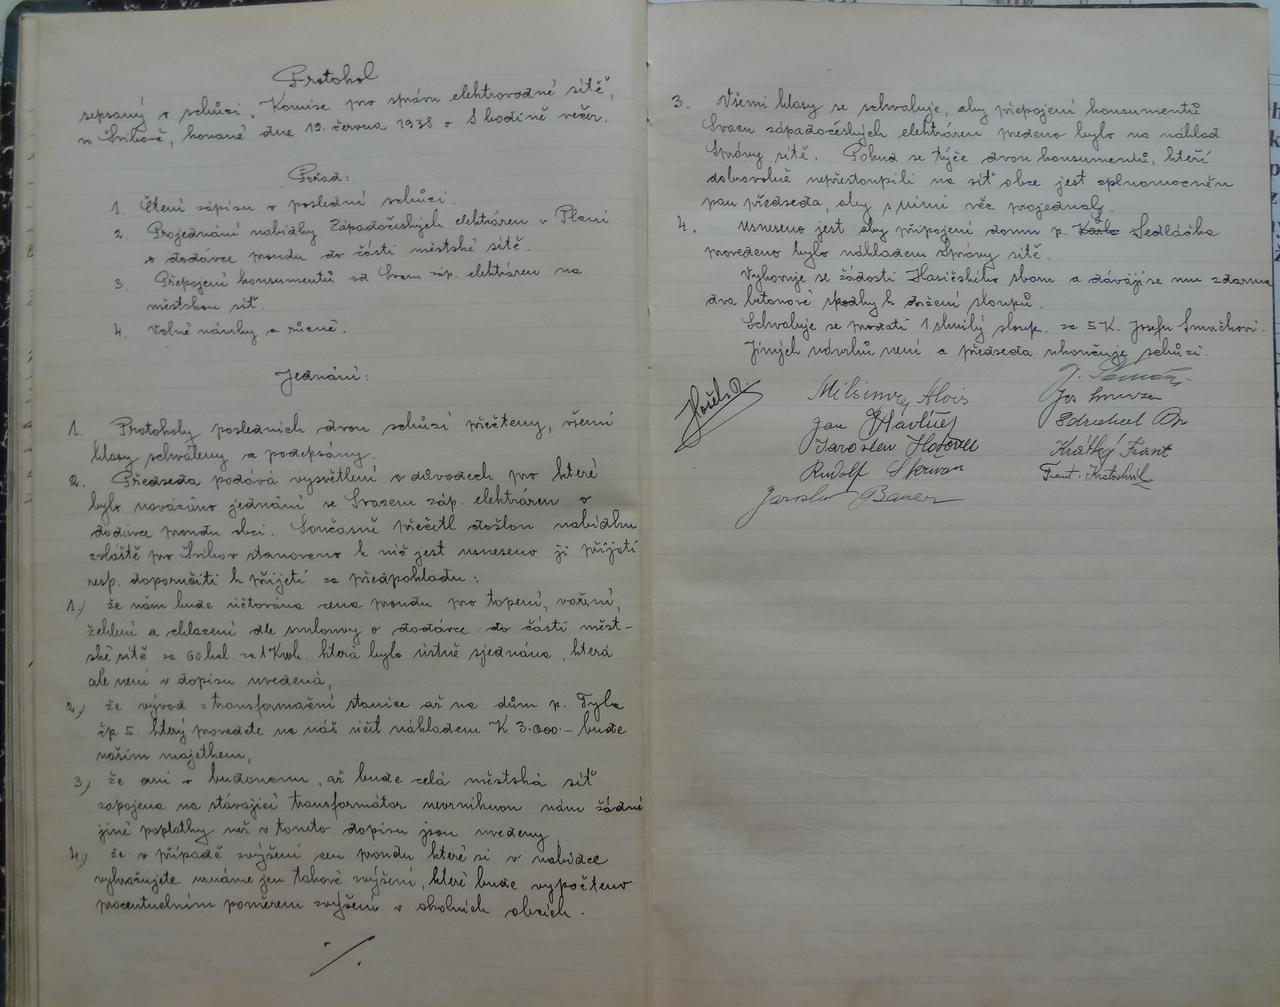 Protokol
sepsaný o schůzi "Komise pro správu elektrovodné sítě,
v Švihově, konané dne 19. června 1938 o 8 hodině večer.
Pořad:
1. Čtení zápisu o poslední schůzi.
2. Projednání nabídky Západočeských elektráren v Plzni
o dodávce proudu do části městské sítě.
3. Přepojení konsumentů od Svazu záp. elektráren na
městskou síť.
4. Volné návrhy a různé.
Jednání:
1. Protokoly posledních dvou schůzí přečteny, všemi
hlasy schváleny a podepsány.
2. Předseda podává vysvětlení o důvodech pro které
bylo navázáno jednání se Svazem záp. elektráren o
dodávce proudu obci. Současně přečetl došlou nabídku
zvláště pro Švihov stanovenou k níž jest usneseno ji přijati
resp. doporučiti k přijetí za předpokladu:
1.) že nám bude účtována cena proudu pro topení, vaření,
žehlení a chlazení dle smlouvy o dodávce do části měst-
ské sítě za 60 hal. za 1 Kwh. která byla ústně sjednána, která
ale není v dopisu uvedená,
2.) že vývod z transformační stanice až na dům p. Tyla
čp 5. který provedete na náš účet nákladem K 3.000.– bude
naším majetkem,
3.) že ani v budoucnu, až bude celá městská síť
zapojena na stávající transformátor nevzniknou nám žádné
jiné poplatky než v tomto dopisu jsou uvedeny,
4.) že v případě zvýšení cen proudu které si v nabídce
vyhražujete uznáme jen takové zvýšení, které bude vypočteno
procentuelním poměrem zvýšení v okolních obcích.
./.
3. Všemi hlasy se schvaluje, aby přepojení konsumentů
Svazu západočeských elektráren provedeno bylo na náklad
Správy sítě. Pokud se týče dvou konsumentů, kteří
dobrovolně nepřestoupili na síť obce jest zplnomocněn
pan předseda, aby s nimi věc projednal.
4. Usneseno jest aby připojení domu p. Sedláčka
provedeno bylo nákladem Správy sítě.
Vyhovuje se žádosti Hasičského sboru a dávají se mu zdarma
dva betonové spodky k držení sloupů.
Schvaluje se prodati 1 shnilý sloup. za 5 K. Josefu Smučkovi.
Jiných návrhů není a předseda ukončuje schůzi.
Alois
Jan Havlíček
Jaroslav
Rudolf Skřivan
Jaroslav Bauer
Jos
Krátký Frant
Frant. Kratochvíl